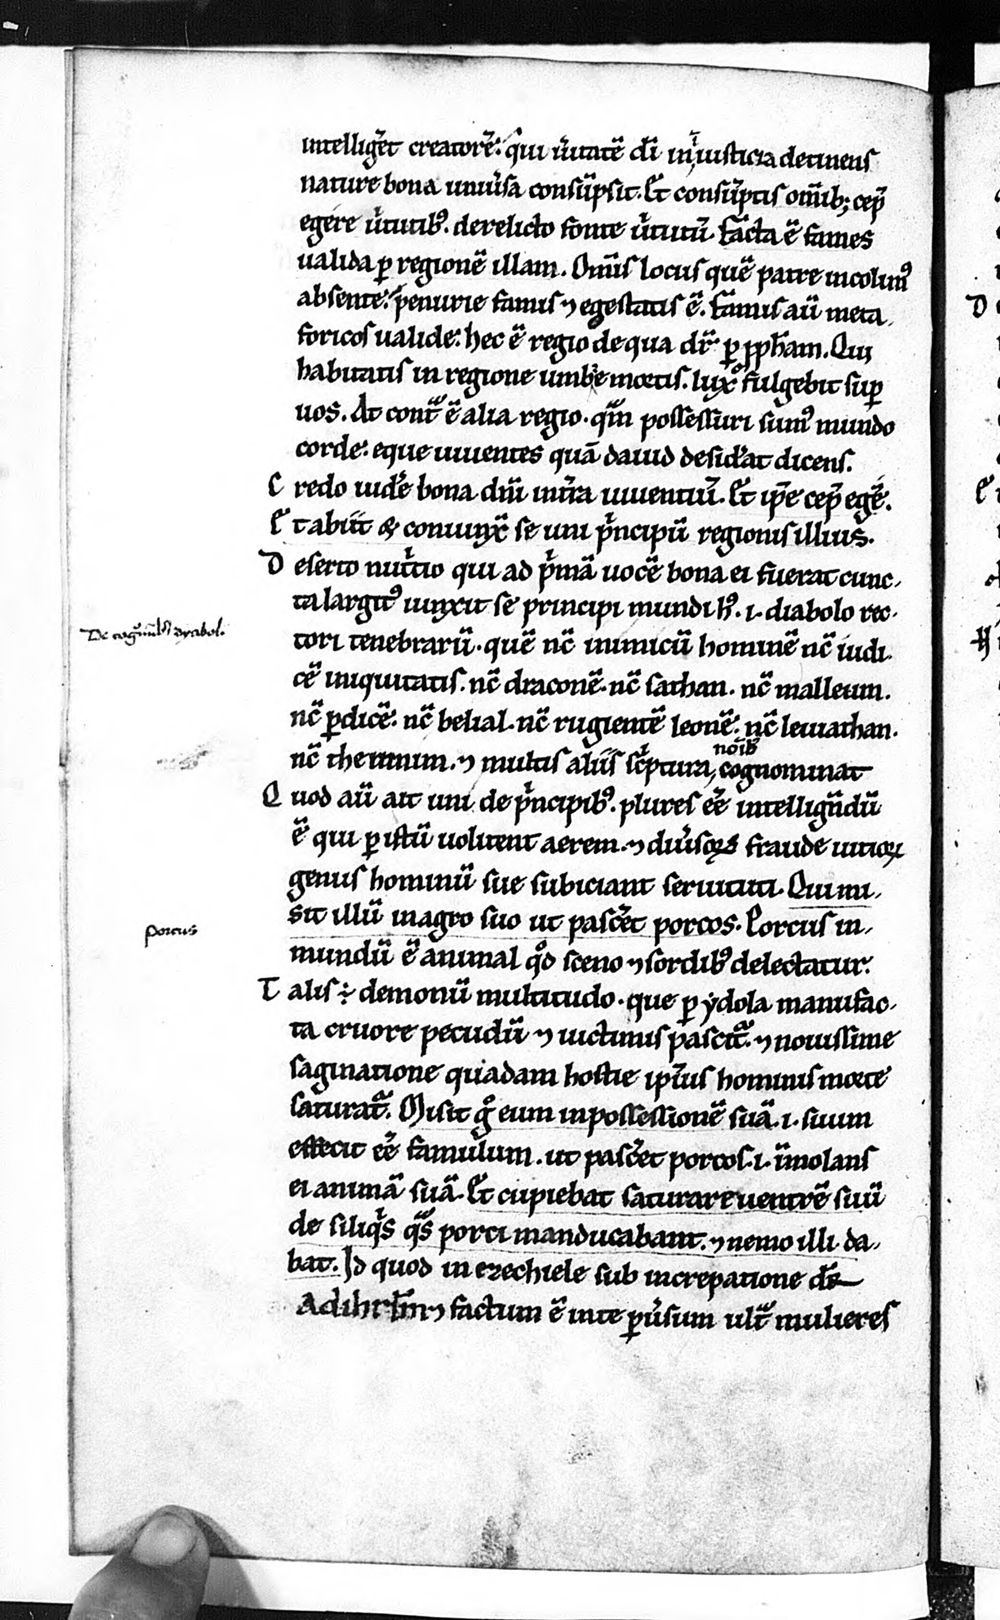 intellig̃et creatorē. qui ũitatē dī in iusticia detinens
nature bona uniũsa consūpsit. Et consũptis om̄ib; cep̄
egere ũtutib⁹. derelicto fonte ũtutū. facta ē fames
ualida ꝑ regionē illam. Om̄is locus quē patre incolim⁹
absente. penurie famis ⁊ egestatis ē. famis aū meta
foricos ualide. hec ē regio de qua dr̄ ꝑ ꝓph̄am. Qui
habitatis in regione umb̄e mortis. lux fulgebit suꝑ
uos. At cont̄ ē alia regio. qm̄ possessuri sum⁹ mundo
corde. eque uiuentes quā dauid desid̄at dicens.
Credo uid̄e bona dn̄i in t̄ra uiuentiū. Et ip̄e cep̄ eḡe.
Et abiit & coniunx̄ se uni p̄ncipū regionis illius.
Deserto nut̄tio qui ad p̄mā uocē bona ei fuerat cunc
ta largit⁹ iunxit se principi mundi h⁹. i. diabolo rec
De cog̃nīb⁹ dyabol.
tori tenebrarū. quē nc̄ inimicū hominē nc̄ iudi
cē iniquitatis. nc̄ draconē. nc̄ sathan. nc̄ malleum.
nc̄ ꝑdicē. nc̄ belial. nc̄ rugientē leonē. nc̄ leuiathan.
noīb
nc̄ thennim. ⁊ multis aliis sc̄ptura, cognominat
Quod aū ait uni de p̄ncipib⁹. plures eē intellign̄dū
ē qui ꝑ istū uolitent aerem. ⁊ diũsoꝝ fraude uitioꝝ
genus hominū sue subiciant seruituti. Qui mi
sit illū in agro suo ut pasc̄et porcos. Porcus in
porcus
mundū ē animal qd̄ sceno ⁊ sordib⁹ delectatur.
Talis ÷ demonū multitudo. que ꝑ ydola manufac
ta cruore pecudū ⁊ uictimis pascit̄. ⁊ nouissime
saginatione quadam hostie ip̄ius hominis morte
saturat̄. Misit g̊ eum in possessionē suā. i. suum
effecit eē famulum. ut pasc̄et porcos. i. īmolans
ei animā suā. Et cupiebat saturare uentrē suū
de siliq̄s q̄s porci manducabant. ⁊ nemo illi da
bat. Id quod in ezechiele sub increpatione dr̄
Ad ihrl̄m ⁊ factum ē in te ꝑũsum ult̄ mulieres